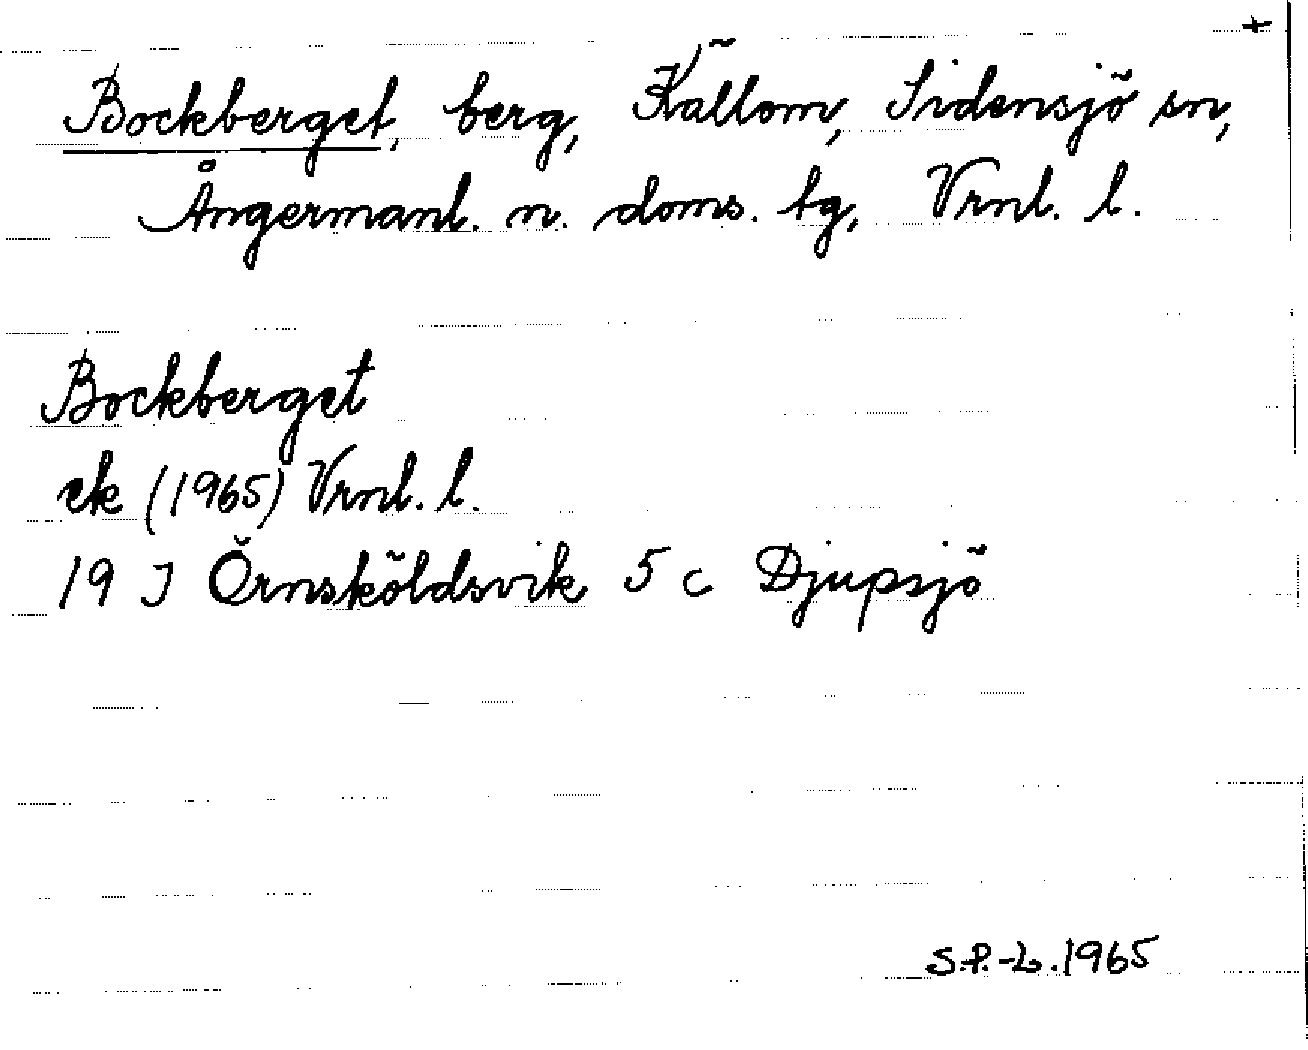 +
Bockberget, berg, Källom, Sidensjö sn,
Ångermanl. n. doms. tg, Vrnl. l.
Bockberget
ek (1965) Vrnl. l.
19 J Örnsköldsvik 5 c Djupsjö
S.P.-L. 1965